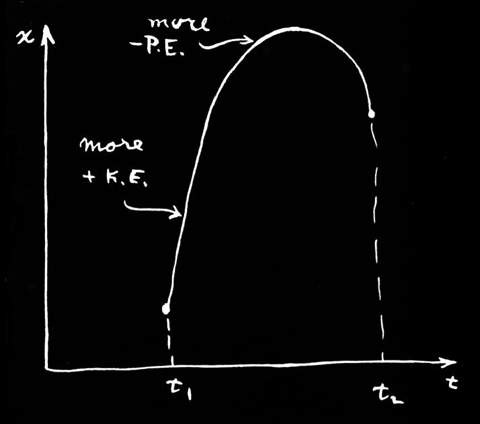 more
-P.E.
x
more
+ K.E.
t₁
t₂
t